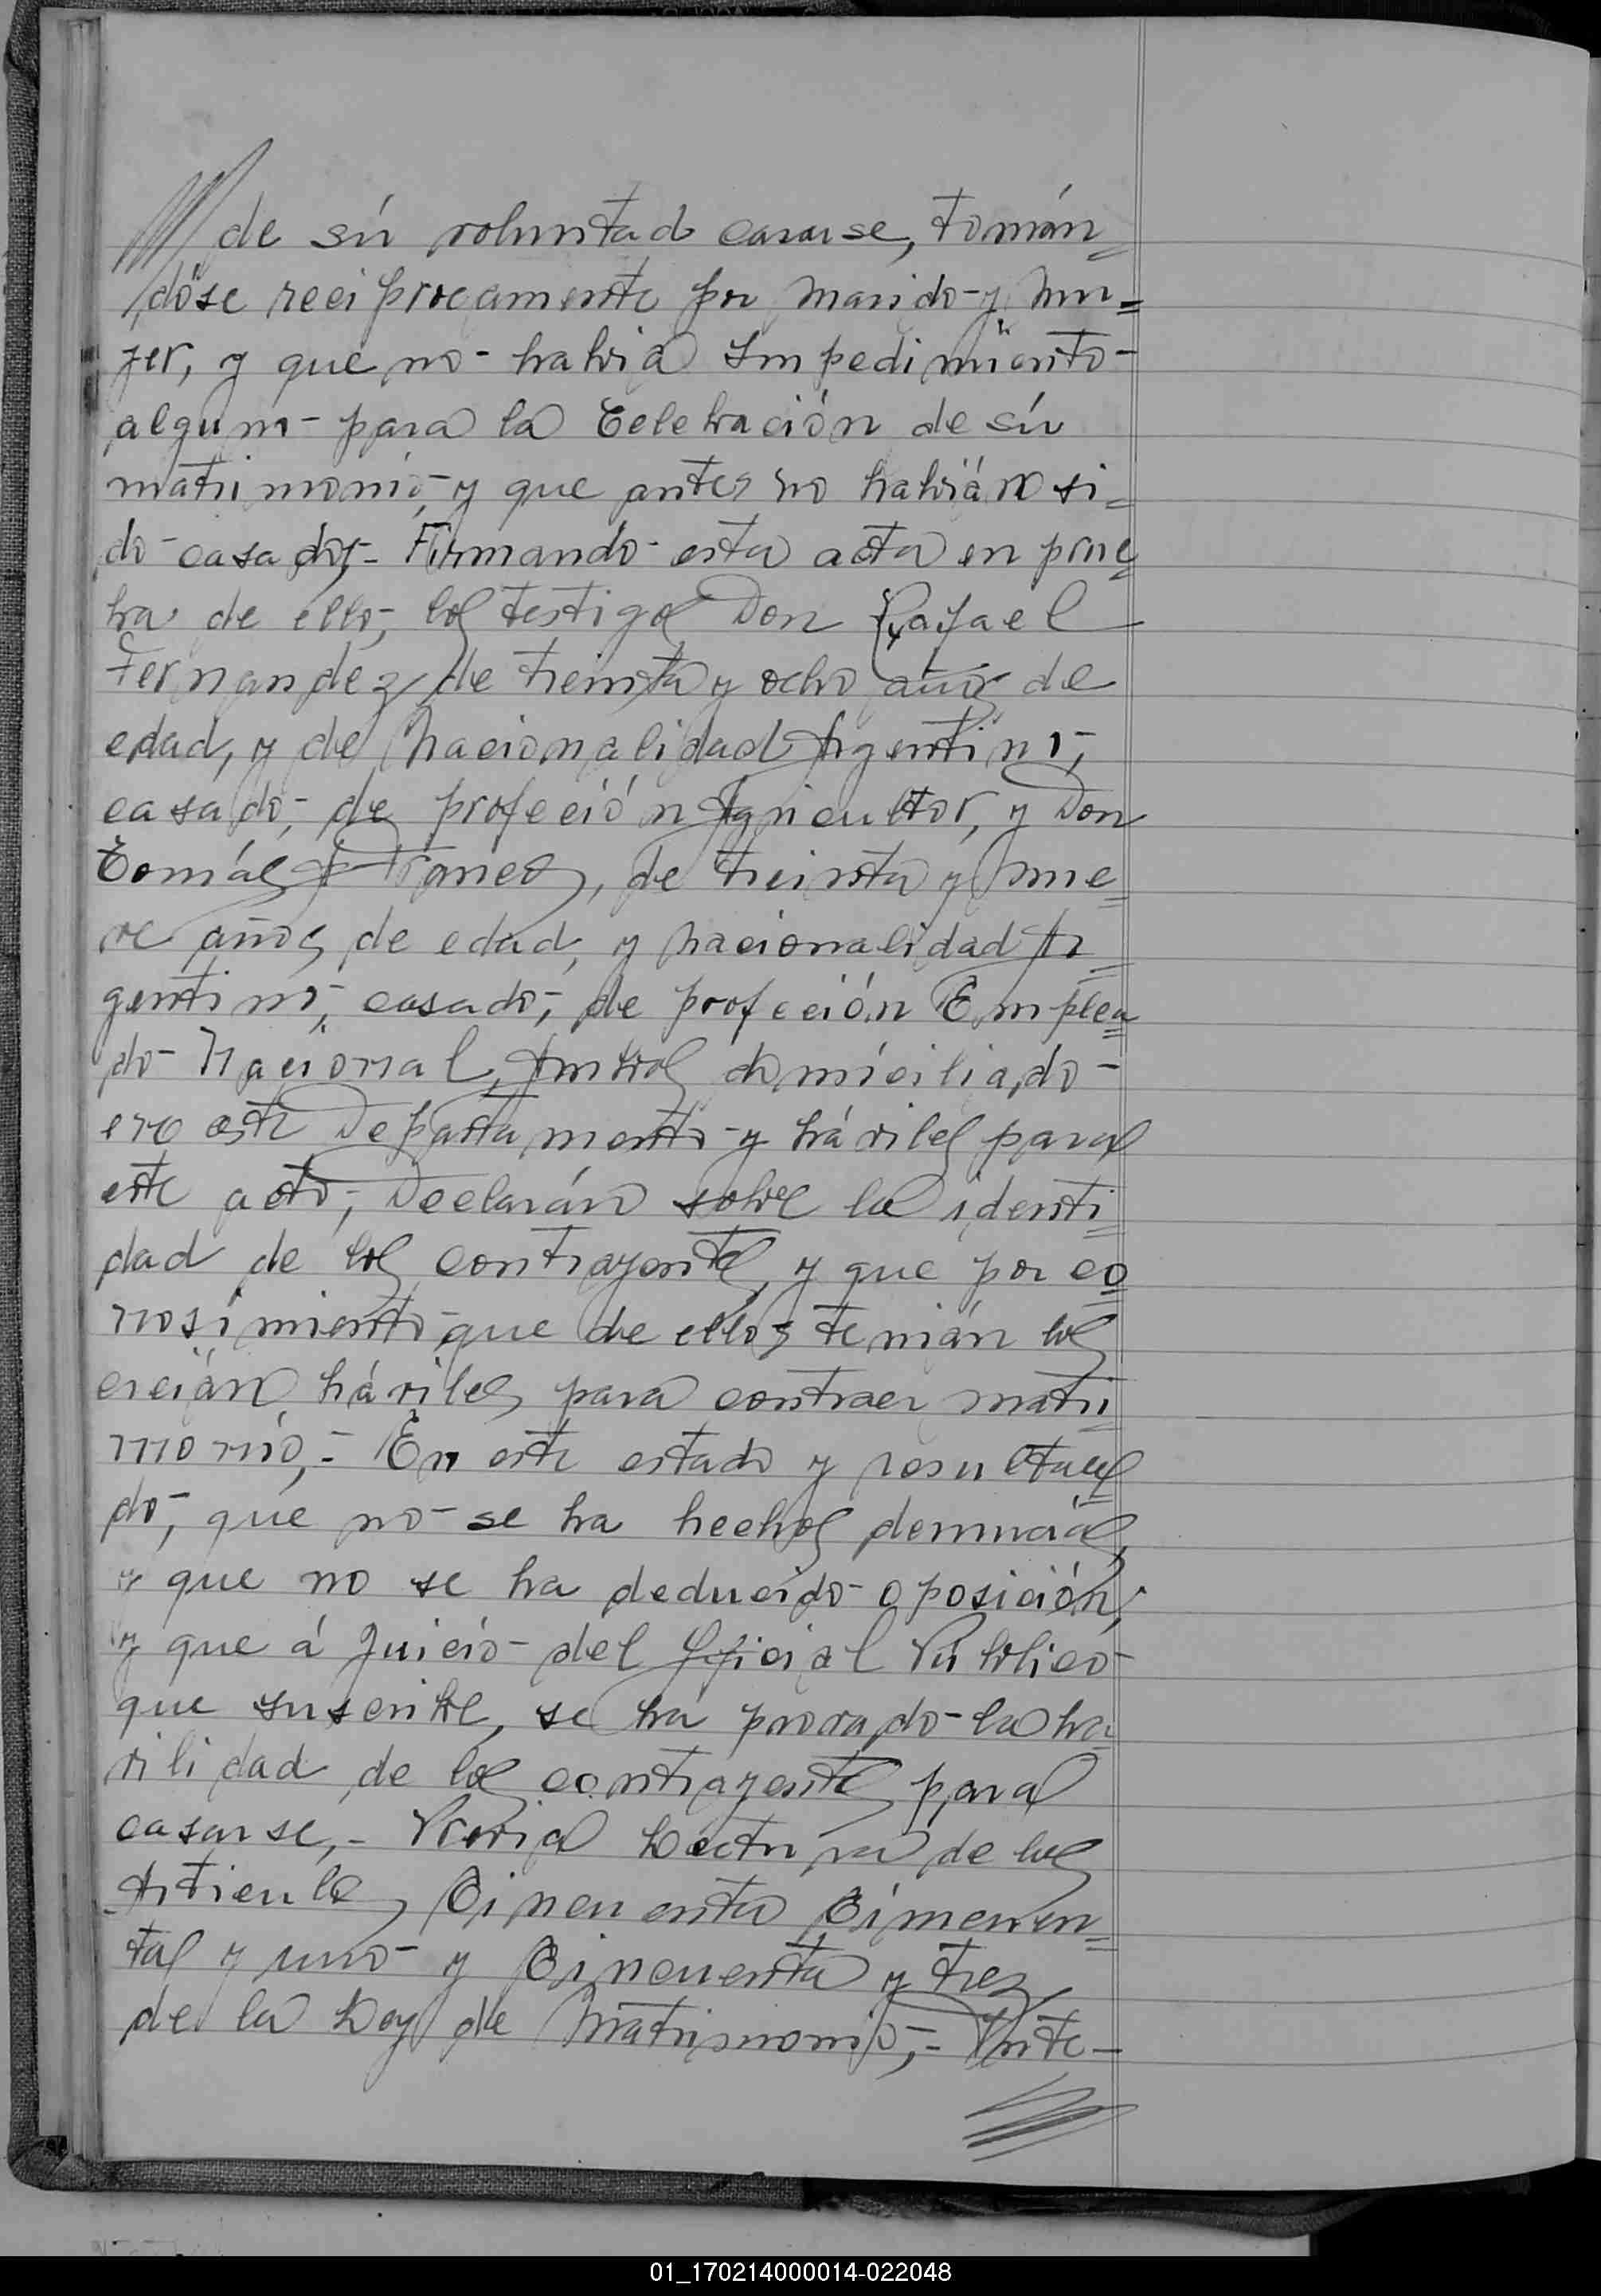 de sú voluntad casarse, tomán=
dóse reciprocamente por marido y mu=
jer, y que no habia Impedimiento
alguno para la Celebración de sú
matrimonio, y que antes no habián si=
do casados,- Firmando esta acta en prue
ba de ello, los testigos Don Rafael
Fernandez, de treinta y ocho años de
edad, y de nacionalidad Argentino,
casado, de profeción Agricultor, y Don
Tomás A. de treinta y nue=
ve años de edad, y nacionalidad Ar=
gentino, casado, de profeción Emplea=
do Nacional, Ambos domiciliado
en este Departamento y háviles para
este acto, Declarán sobre la identi=
dad de los contrayentes, y que por co=
nosimiento que de ellos tenián los
creián háviles para contraer matri=
monio,- En este estado y resultan=
do, que no se ha hechos denuncias,
y que no se ha deducido oposición,
y que á Juicio del Oficial Público
que suscribe, se ha provado la ha=
vilidad de los contrayentes para
casarse,- Previa Lectura de los
Articulos Cincuenta Cincuen=
ta y uno y Cincuenta y tres,
de la Ley de Matrimonio,- Ante-
01_170214000014-022048